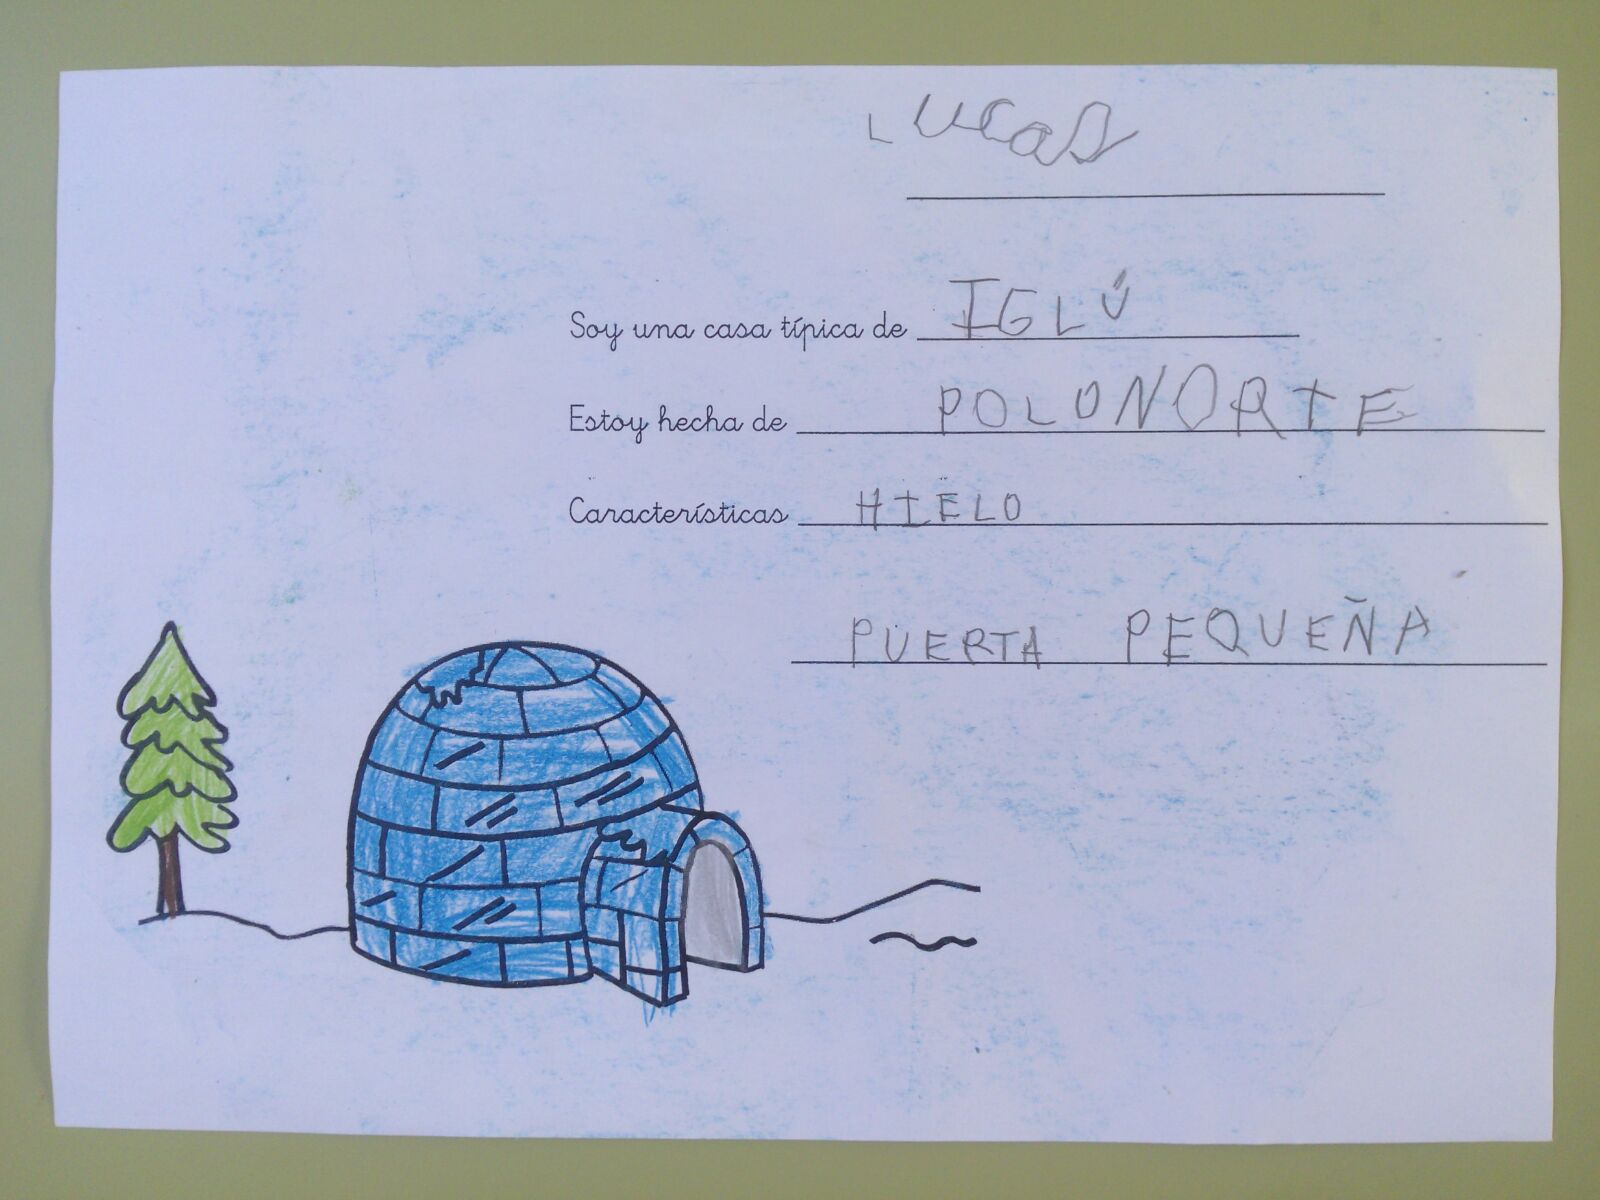 Lucas
Soy una casa típica de IGLÚ
Estoy hecha de POLONORTE
Características HIELO
PUERTA PEQUEÑA